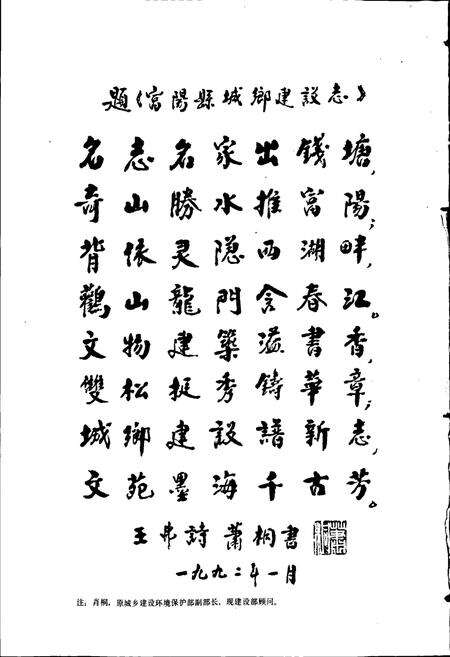 题《富陽縣城鄉建設志》
名志名家出錢塘，
奇山勝水推富陽；
背依灵隐西湖畔，
觀山龍門含春江。
文物建築溢書香，
雙松挺秀鋳華章；
城鄉建設譜新志，
文苑墨海千古芳。
王弗詩 蕭桐書
一九九二年一月
注：肖桐，原城乡建设环境保护部副部长，现建设部顾问。